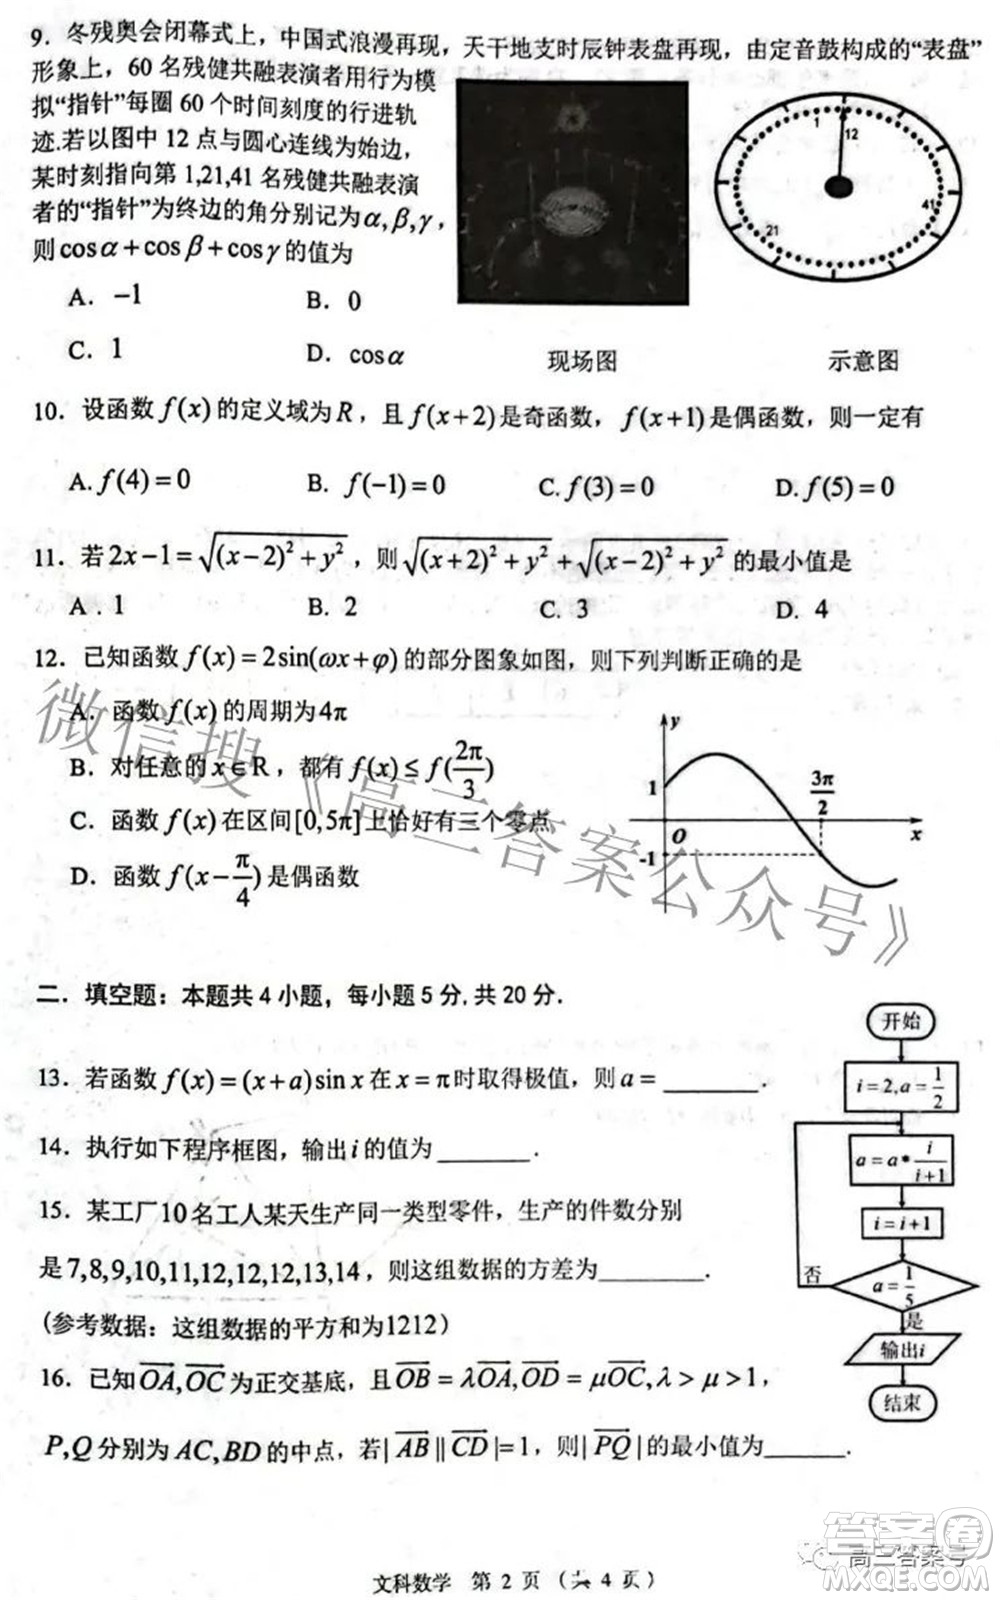 9. 冬残奥会闭幕式上，中国式浪漫再现，天干地支时辰钟表盘再现，由定音鼓构成的“表盘”
形象上，60 名残健共融表演者用行为模
拟“指针”每圈 60 个时间刻度的行进轨
迹.若以图中 12 点与圆心连线为始边，
某时刻指向第 1,21,41 名残健共融表演
者的“指针”为终边的角分别记为α,β,γ，
则 cosα+cosβ+cosγ 的值为
A. −1
B. 0
C. 1
D. cosα
1
12
21
41
现场图
示意图
10. 设函数 f(x) 的定义域为 R，且 f(x+2) 是奇函数，f(x+1) 是偶函数，则一定有
A. f(4)=0
B. f(−1)=0
C. f(3)=0
D. f(5)=0
11. 若 2x−1=√((x−2)²+y²)，则 √((x+2)²+y²)+√((x−2)²+y²) 的最小值是
A. 1
B. 2
C. 3
D. 4
12. 已知函数 f(x)=2sin(ωx+φ) 的部分图象如图，则下列判断正确的是
A. 函数 f(x) 的周期为4π
B. 对任意的 x∈R，都有 f(x)≤f(2π/3)
C. 函数 f(x) 在区间[0,5π]上恰好有三个零点
D. 函数 f(x−π/4) 是偶函数
y
1
O
3π/2
x
-1
微信搜《高三答案公众号》
二. 填空题：本题共 4 小题，每小题 5 分,共 20 分.
13. 若函数 f(x)=(x+a)sin x 在 x=π 时取得极值，则 a= ________.
14. 执行如下程序框图，输出 i 的值为 ________.
15. 某工厂10名工人某天生产同一类型零件，生产的件数分别
是 7,8,9,10,11,12,12,12,13,14，则这组数据的方差为________.
(参考数据：这组数据的平方和为1212)
16. 已知 →OA,→OC 为正交基底，且 →OB=λ→OA,→OD=μ→OC,λ>μ>1，
P,Q 分别为 AC,BD 的中点，若|→AB||→CD|=1，则|→PQ|的最小值为______.
开始
i=2,a=1/2
a=a*i/(i+1)
i=i+1
否
a=1/5
是
输出i
结束
文科数学 第 2 页（共 4 页）
高三答案号
答案圈
MXQE.COM